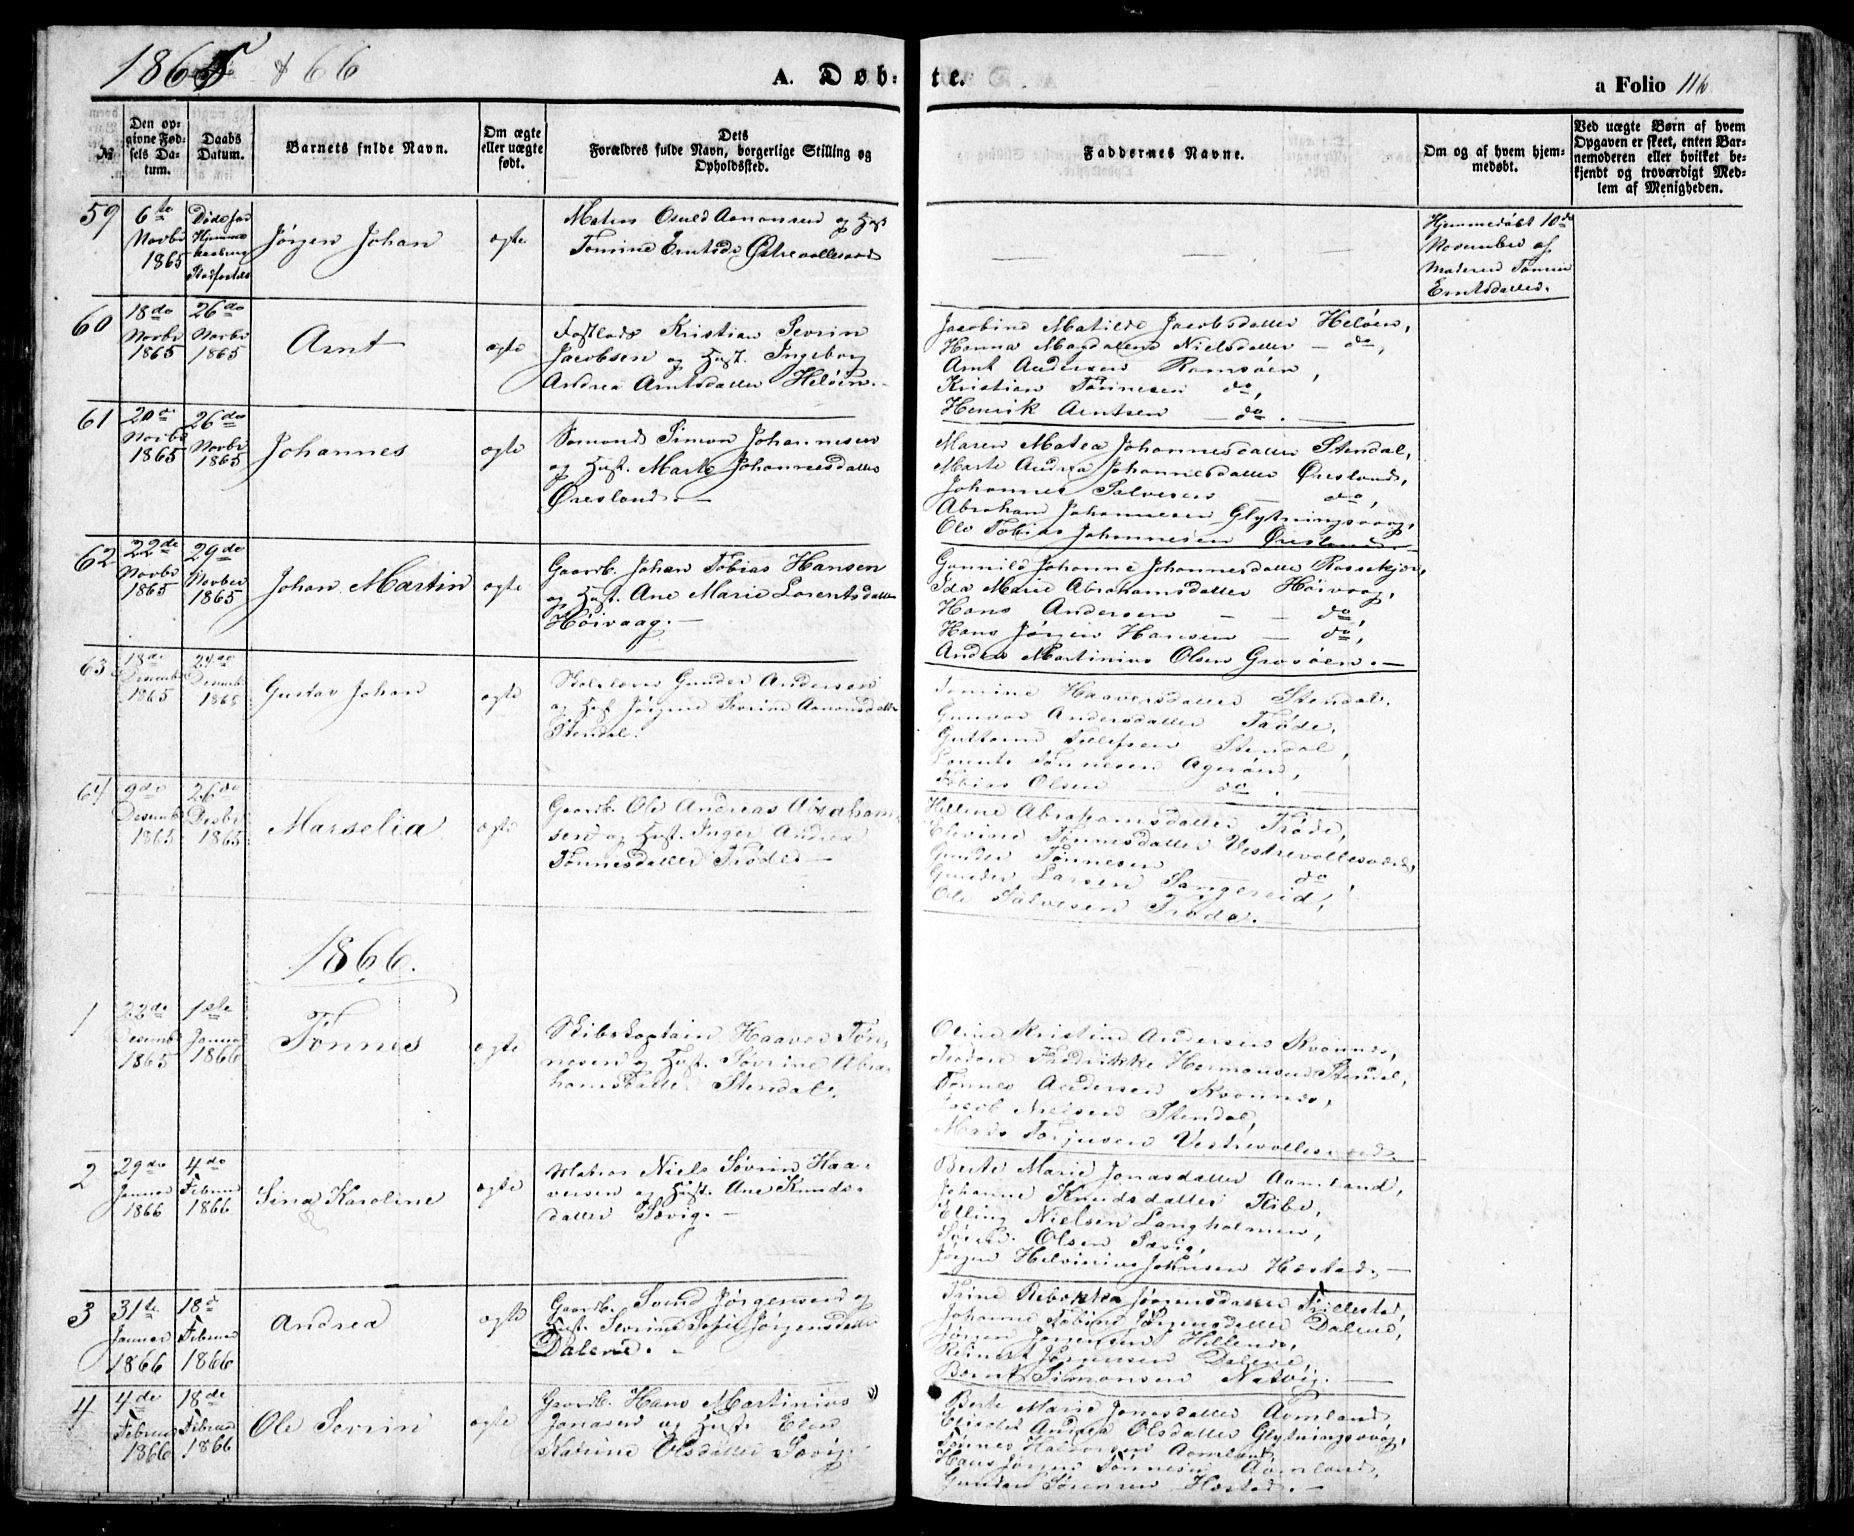 1865 & 66
A. Døb-
te.
a Folio 116
№
Den op-
givne Fød-
sels Da-
tum.
Daabs
Datum.
Barnets fulde Navn.
Om ægte
eller uægte
født.
Dets
Forældres fulde Navn, borgerlige Stilling og
Opholdssted.
Faddernes Navne.
Om og af hvem hjem-
medøbt.
Ved uægte Børn af hvem
Opgaven er skeet, enten Bar-
nemoderen eller hvilket be-
kjendt og troværdigt Med-
lem af Menigheden.
59
6te
Novbr
1865
Døde før
Jørgen Johan
ægte
Matros Osuld Aanonsen og Hust
Tomine Erntsdr Østrevollesvord
Hjemmedøbt 10de
November af
Moderen Tomine
Erntsdatter.
60
18de
Novbr
1865
26de
Novbr
1865
Arnt
ægte
Kristian Sevrin
Jacobsen og Hust. Ingeborg
Andrea Arntsdatter Heløen.
Jacobine Matilde Jacobsdatter Heløen,
Hanna Magdalene Nielsdatter — do,
Arnt Andersen Ramsøen,
Kristian Tønnesen do,
Henrik Arntsen — do. —
61
20de
Novbr
1865
26de
Novbr
1865
Johannes
ægte
Sømand Simon Johannesen
og Hust. Marte Johannesdatter
Øresland. —
Maren Matea Johannesdatter Stendal,
Marte Andrea Johannesdatter Øresland,
Johannes Salvesen — do,
Abraham Johannesen Glytningsvaag,
Ole Tobias Johannesen Øresland. —
62
22de
Novbr
1865
29de
Novber
1865
Johan Martin
ægte
Gaardb. Johan Tobias Hansen
og Hust. Ane Marie Lorentsdatter
Høivaag. —
Gunnild Johanne Johannesdatter Rossekjær,
Ida Marie Abrahamsdatter Høivaag,
Hans Andersen — — do,
Hans Jørgen Hansen — do,
Anders Martinius Olsen Grosøen. —
63
18de
Desembr
1865
24de
Desembr
1865
Gustav Johan
ægte
Gunder Andersen
og Hust Jørgine Sevrine Aanonsdatter
Stendal.
Tomine Haaversdatter Stendal.
Gunvor Andersdatter Trøde,
Guttorm Tellefsen Stendal,
Tønnesen Agerøen,
Tobias Olsen — do. —
64
9de
Desembr
1865
26de
Desbr
1865
Marselia
ægte
Gaardb. Ole Andreas Abraham-
sen og Hust. Inger Andrea
Tønnesdatter Trøde. —
Hellene Abrahamsdatter Trøde,
Elevine Tønnesdatter Vestrevollesværd,
Gunder Tønnesen — do,
Gunder Larsen Sangereid,
Ole Salvesen Trøde. —
1866.
1
22de
Desembr
1865
1ste
Januar
1866
Tønnes
ægte
Skibskaptain Haaver Tøn-
nesen og Hust. Søvrine Abra-
hamsdatter Stendal.
Oline Kristine Andersens Kvannes,
Fredrikke Hermansen Stendal,
Tønnes Andersen Kvannes,
Jacob Nielsen Stendal,
Mads Torjusen Vestrevollesværd.
2
29de
Januar
1866
4de
Februar
1866
Sina Karoline
ægte
Matros Niels Søvrin Haa-
versen og Hust. Ane Knuds-
datter Sævig. —
Berte Marie Jonasdatter Aamland,
Johanne Knudsdatter Ribe,
Elling Nielsen Langholmen,
Olsen Sævig,
Jørgen Helvinius Johnsen Hæstad. —
3
31te
Januar
1866
18de
Februar
1866
Andrea
ægte
Gaardb. Svend Jørgensen og
Hust. Sevrine Sofie Jørgensdatter
Dalene. —
Trine Rebekka Jørgensdatter Trillestad,
Johanne Tobine Jørgensdatter Dalene,
Jørgen Jørgensen Hillend,
Reinert Jørgensen Dalene,
Bernt Simonsen Natvig. —
4
4de
Februar
1866
18de
Februar
1866
Ole Sevrin
ægte
Gaardb. Hans Martinius
Jonasen og Hust. Elen
Katrine Olsdatter Sævig.
Berte Marie Jonasdatter Aamland,
Elisabet Andrea Olsdatter Glytningsvaag,
Tønnes Halvorsen Aamland,
Hans Jørgen Tønnesen Aamland,
Gunder Sørensen Hæstad. —